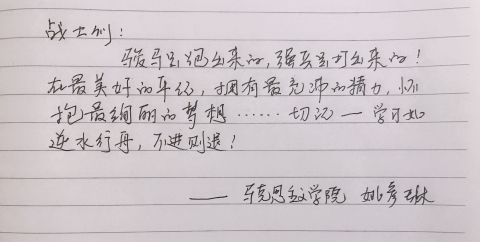 战士们:
骏马是跑出来的,强兵是打出来的!
在最美好的年纪,拥有最充沛的精力,怀
抱最绚丽的梦想……切记一学习如
逆水行舟,不进则退!
——马克思主义学院 姚彦琳